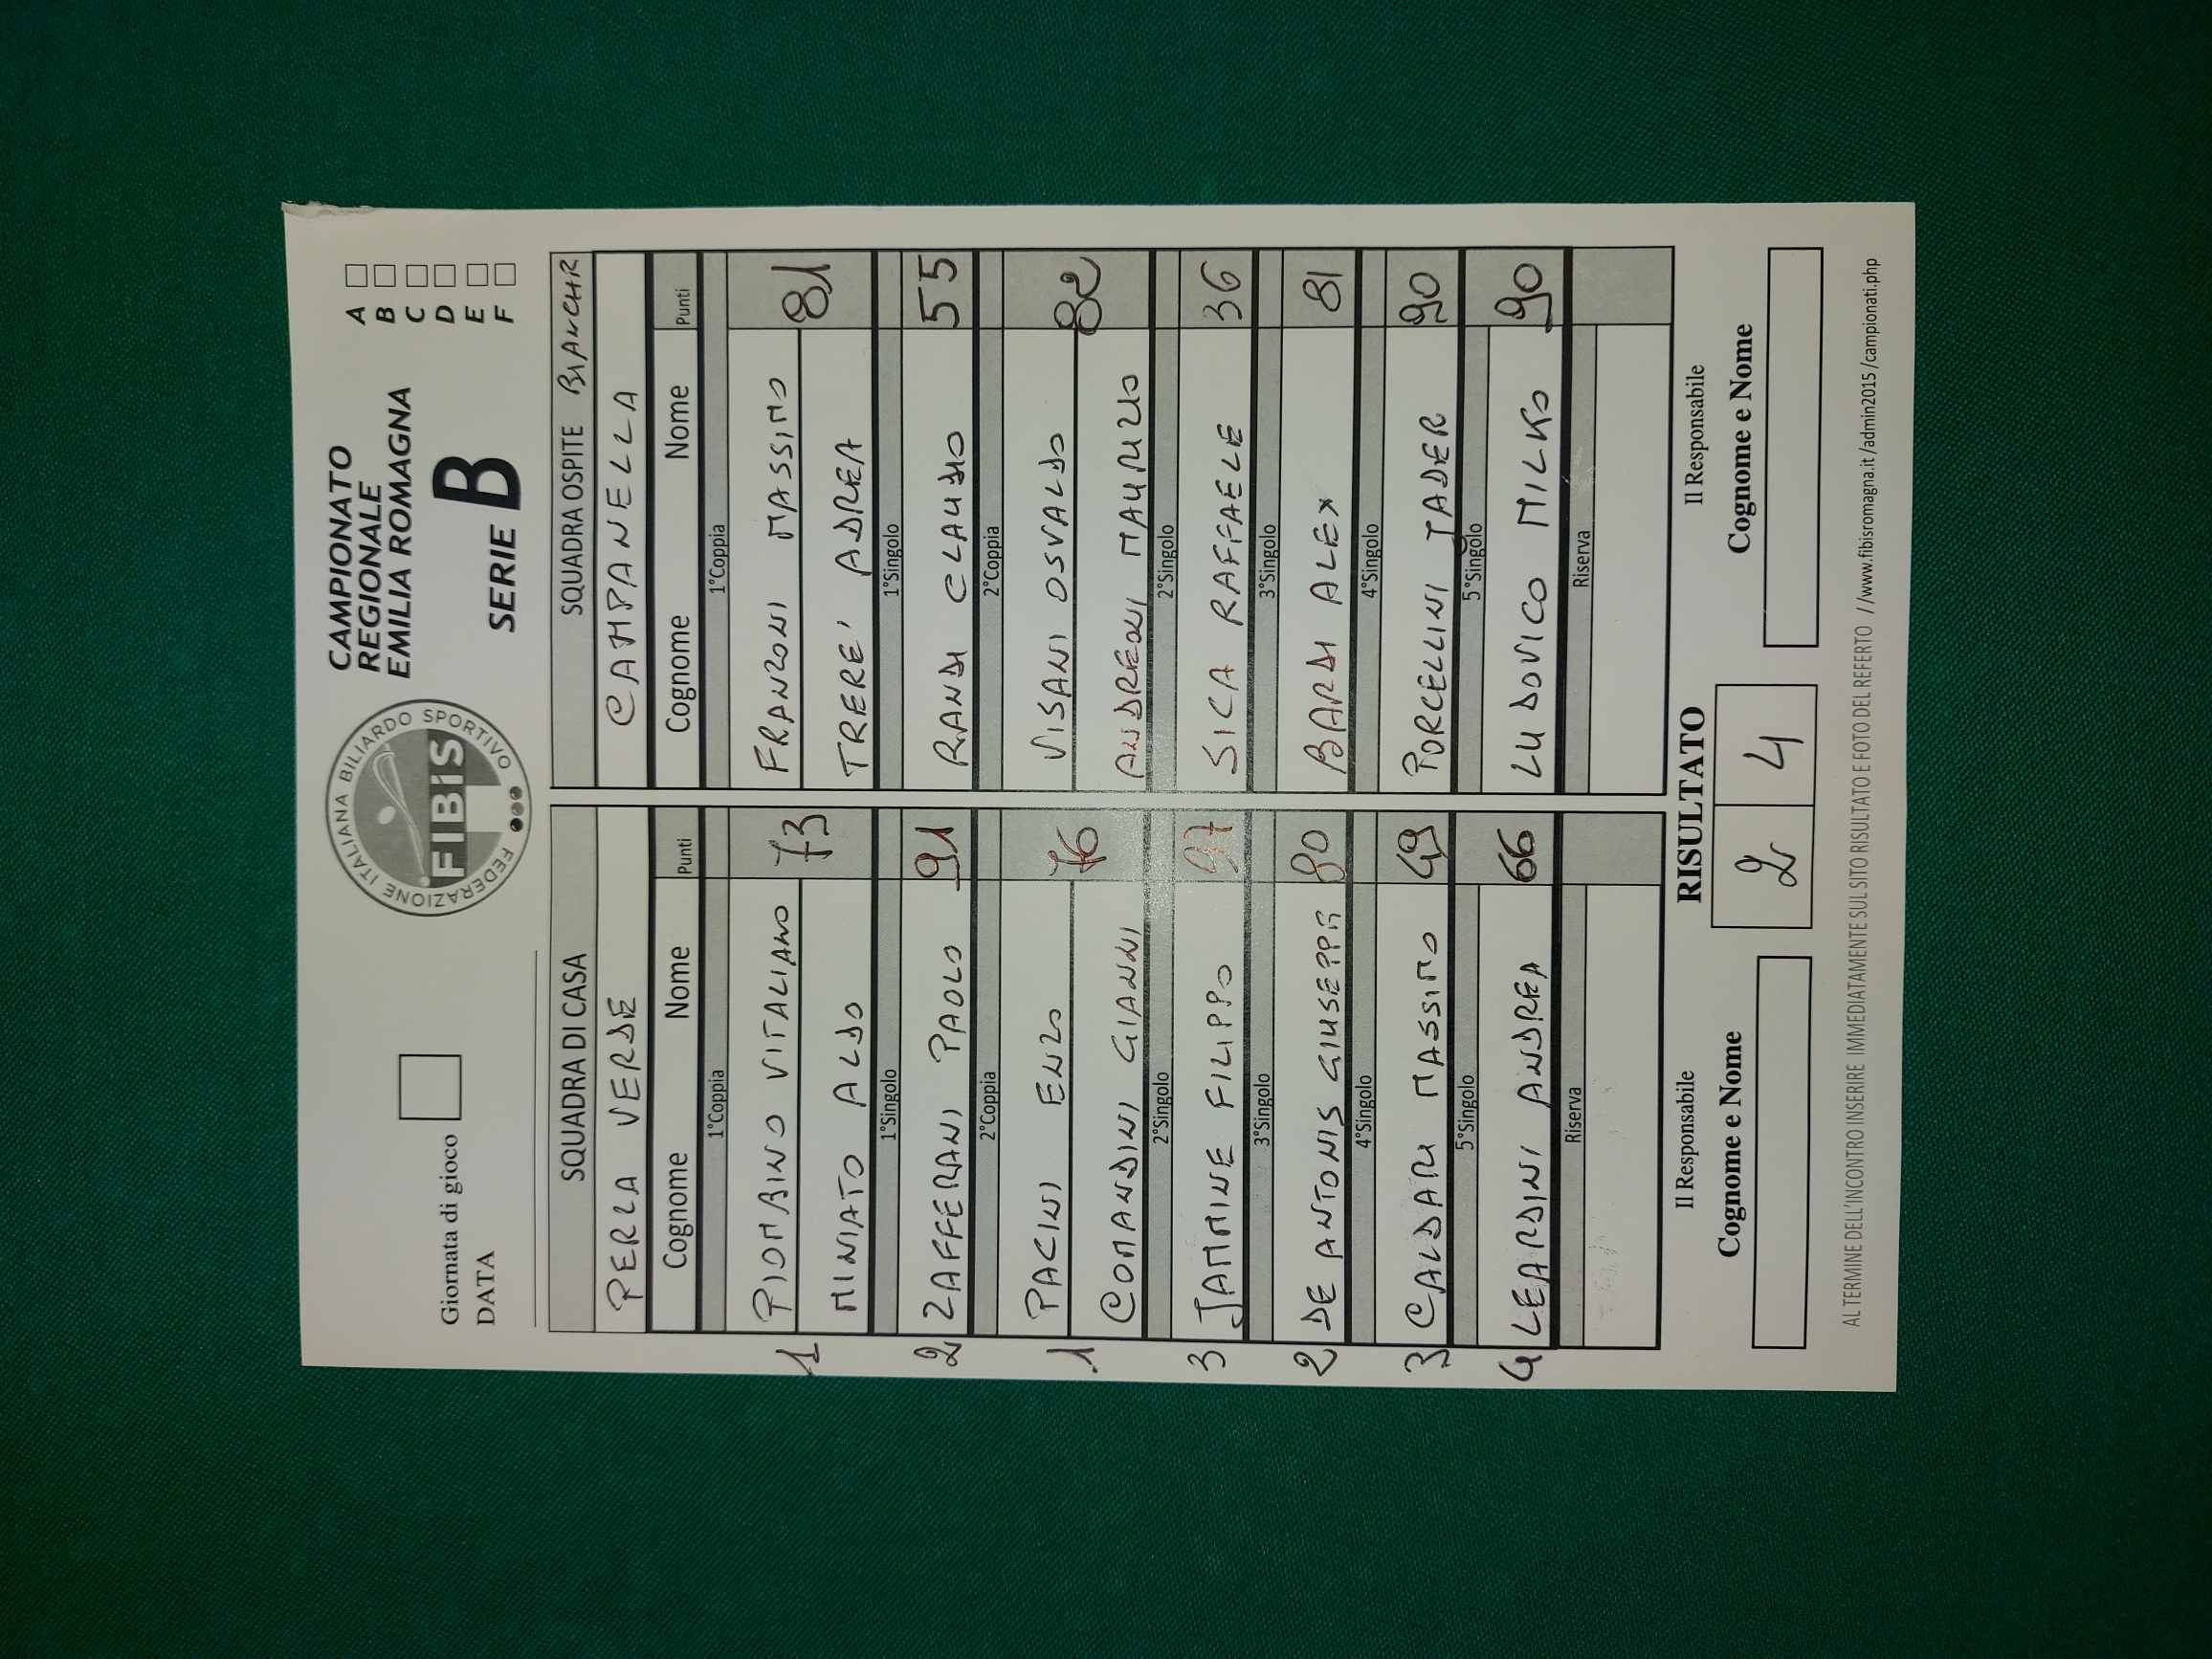 Giornata di gioco
DATA
FEDERAZIONE ITALIANA BILIARDO SPORTIVO
FIBiS
CAMPIONATO
REGIONALE
EMILIA ROMAGNA
SERIE B
A
B
C
D
E
F
SQUADRA DI CASA SQUADRA OSPITE
PERLA VERDE CAMPANELLA
Cognome Nome Punti Cognome Nome Punti
1°Coppia 1°Coppia
1 PIOMBINO VITALIANO 73 FRANZONI MASSIMO 81
MINIATO ALDO TRERE' ADREA
1°Singolo 1°Singolo
2 ZAFFERANI PAOLO 91 RANDI CLAUDIO 55
2°Coppia 2°Coppia
1 PACINI ENZO 76 VISANI OSVALDO 82
COMANDINI GIANNI ANDREONI MAURIZIO
2°Singolo 2°Singolo
3 JAMMINE FILIPPO 97 SICA RAFFAELE 36
3°Singolo 3°Singolo
2 DE ANTONIS GIUSEPPE 80 BARDI ALEX 81
4°Singolo 4°Singolo
3 CALDARI MASSIMO 49 PORCELLINI JADER 90
5°Singolo 5°Singolo
4 LEARDINI ANDREA 66 LUDOVICO MILKO 90
Riserva Riserva
Il Responsabile RISULTATO Il Responsabile
Cognome e Nome 2 4 Cognome e Nome
AL TERMINE DELL'INCONTRO INSERIRE IMMEDIATAMENTE SUL SITO RISULTATO E FOTO DEL REFERTO //www.fibisromagna.it/admin2015/campionati.php